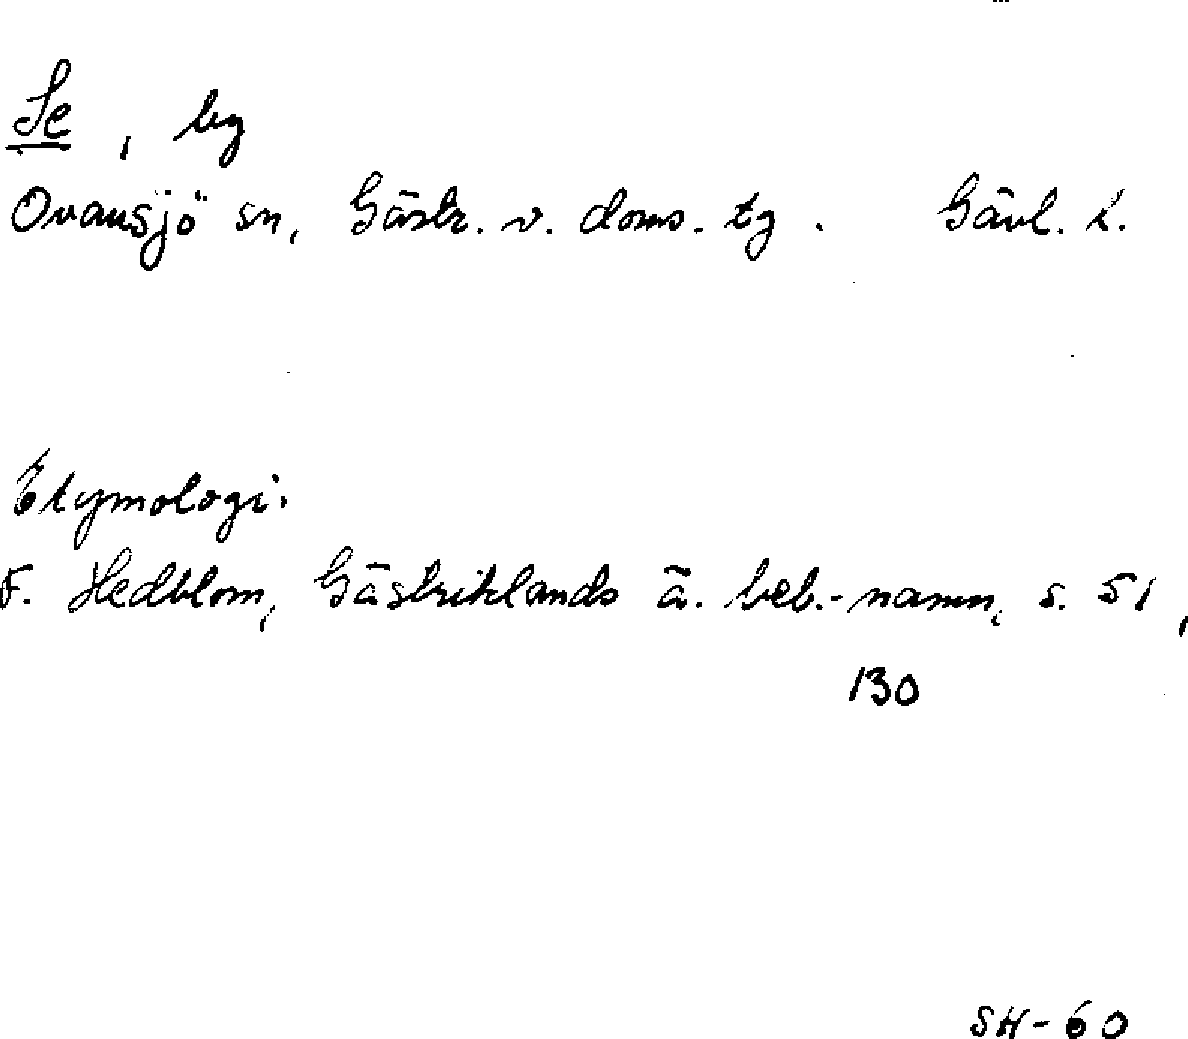 Se, by
Ovansjö sn, Gästr. v. doms. tg. Gävl. l.
Etymologi.
F. Hedblom, Gästriklands ä. beb.-namn, s. 51,
130
SH-60